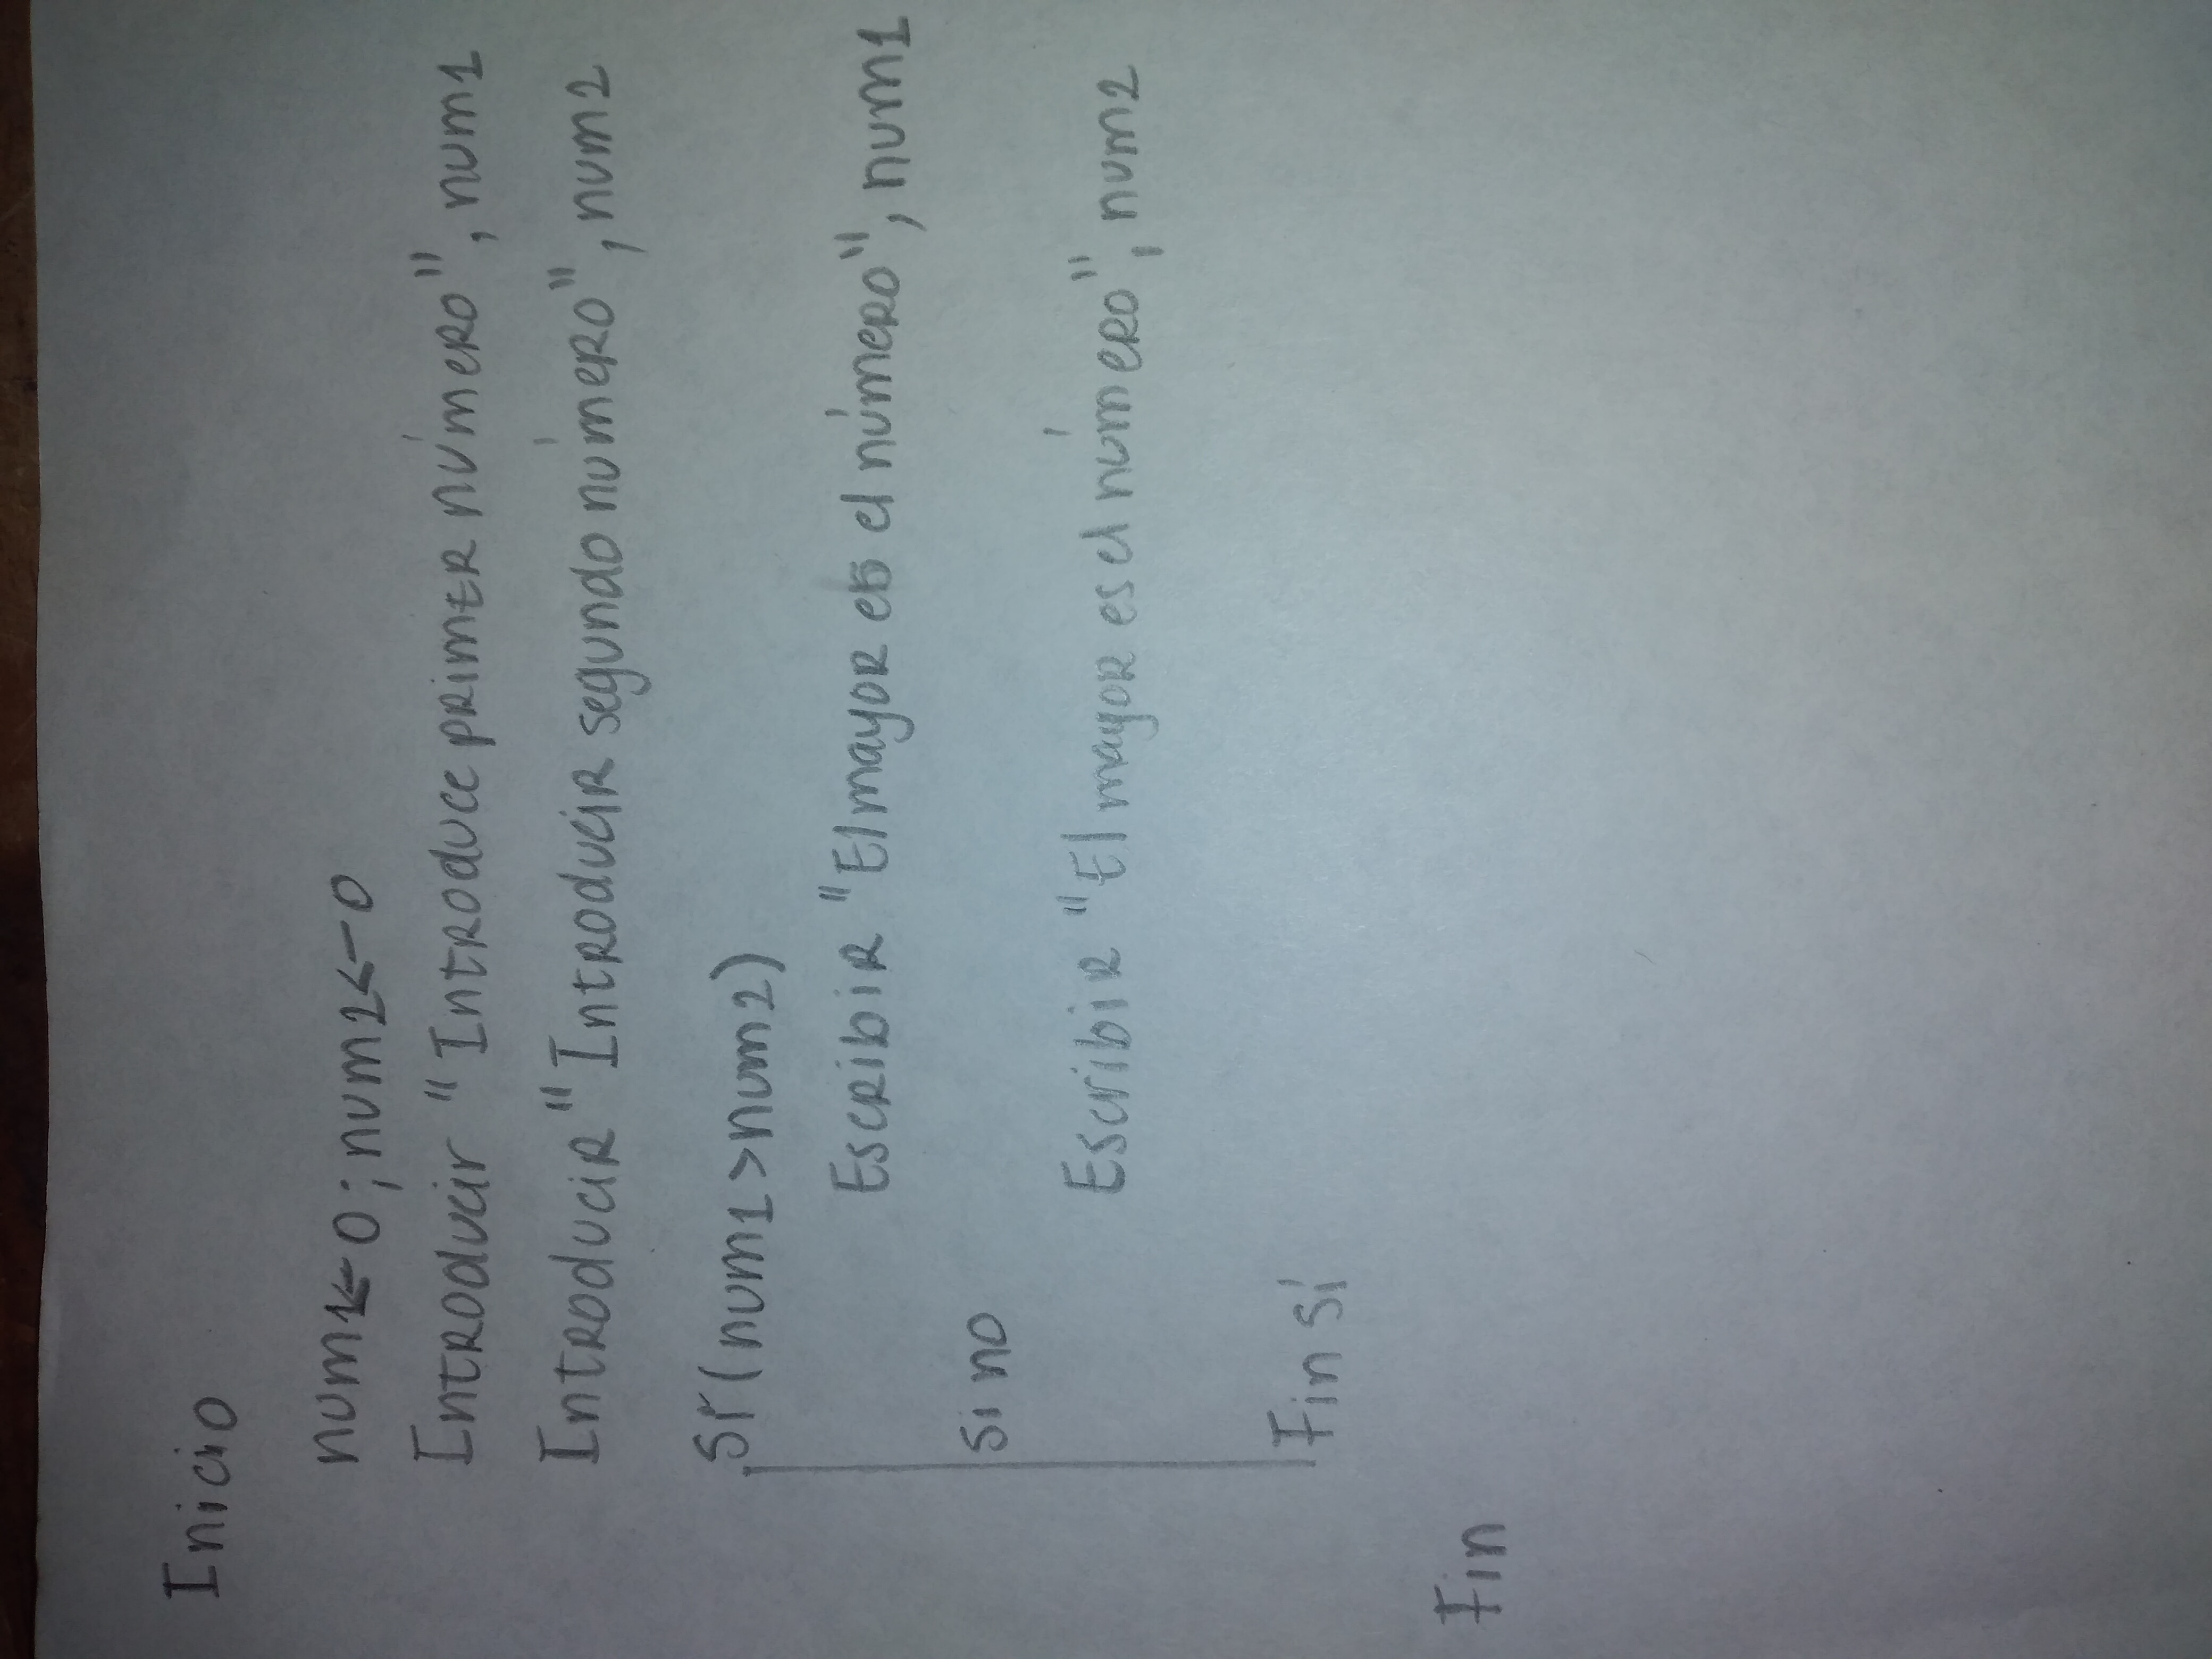 Inicio
num1<-0; num2<-0
Introducir "Introduce primer número", num1
Introducir "Introducir segundo número", num2
Sí (num1>num2)
Escribir "El mayor es el número", num1
Si no
Escribir "El mayor es el número", num2
Fin Sí
Fin